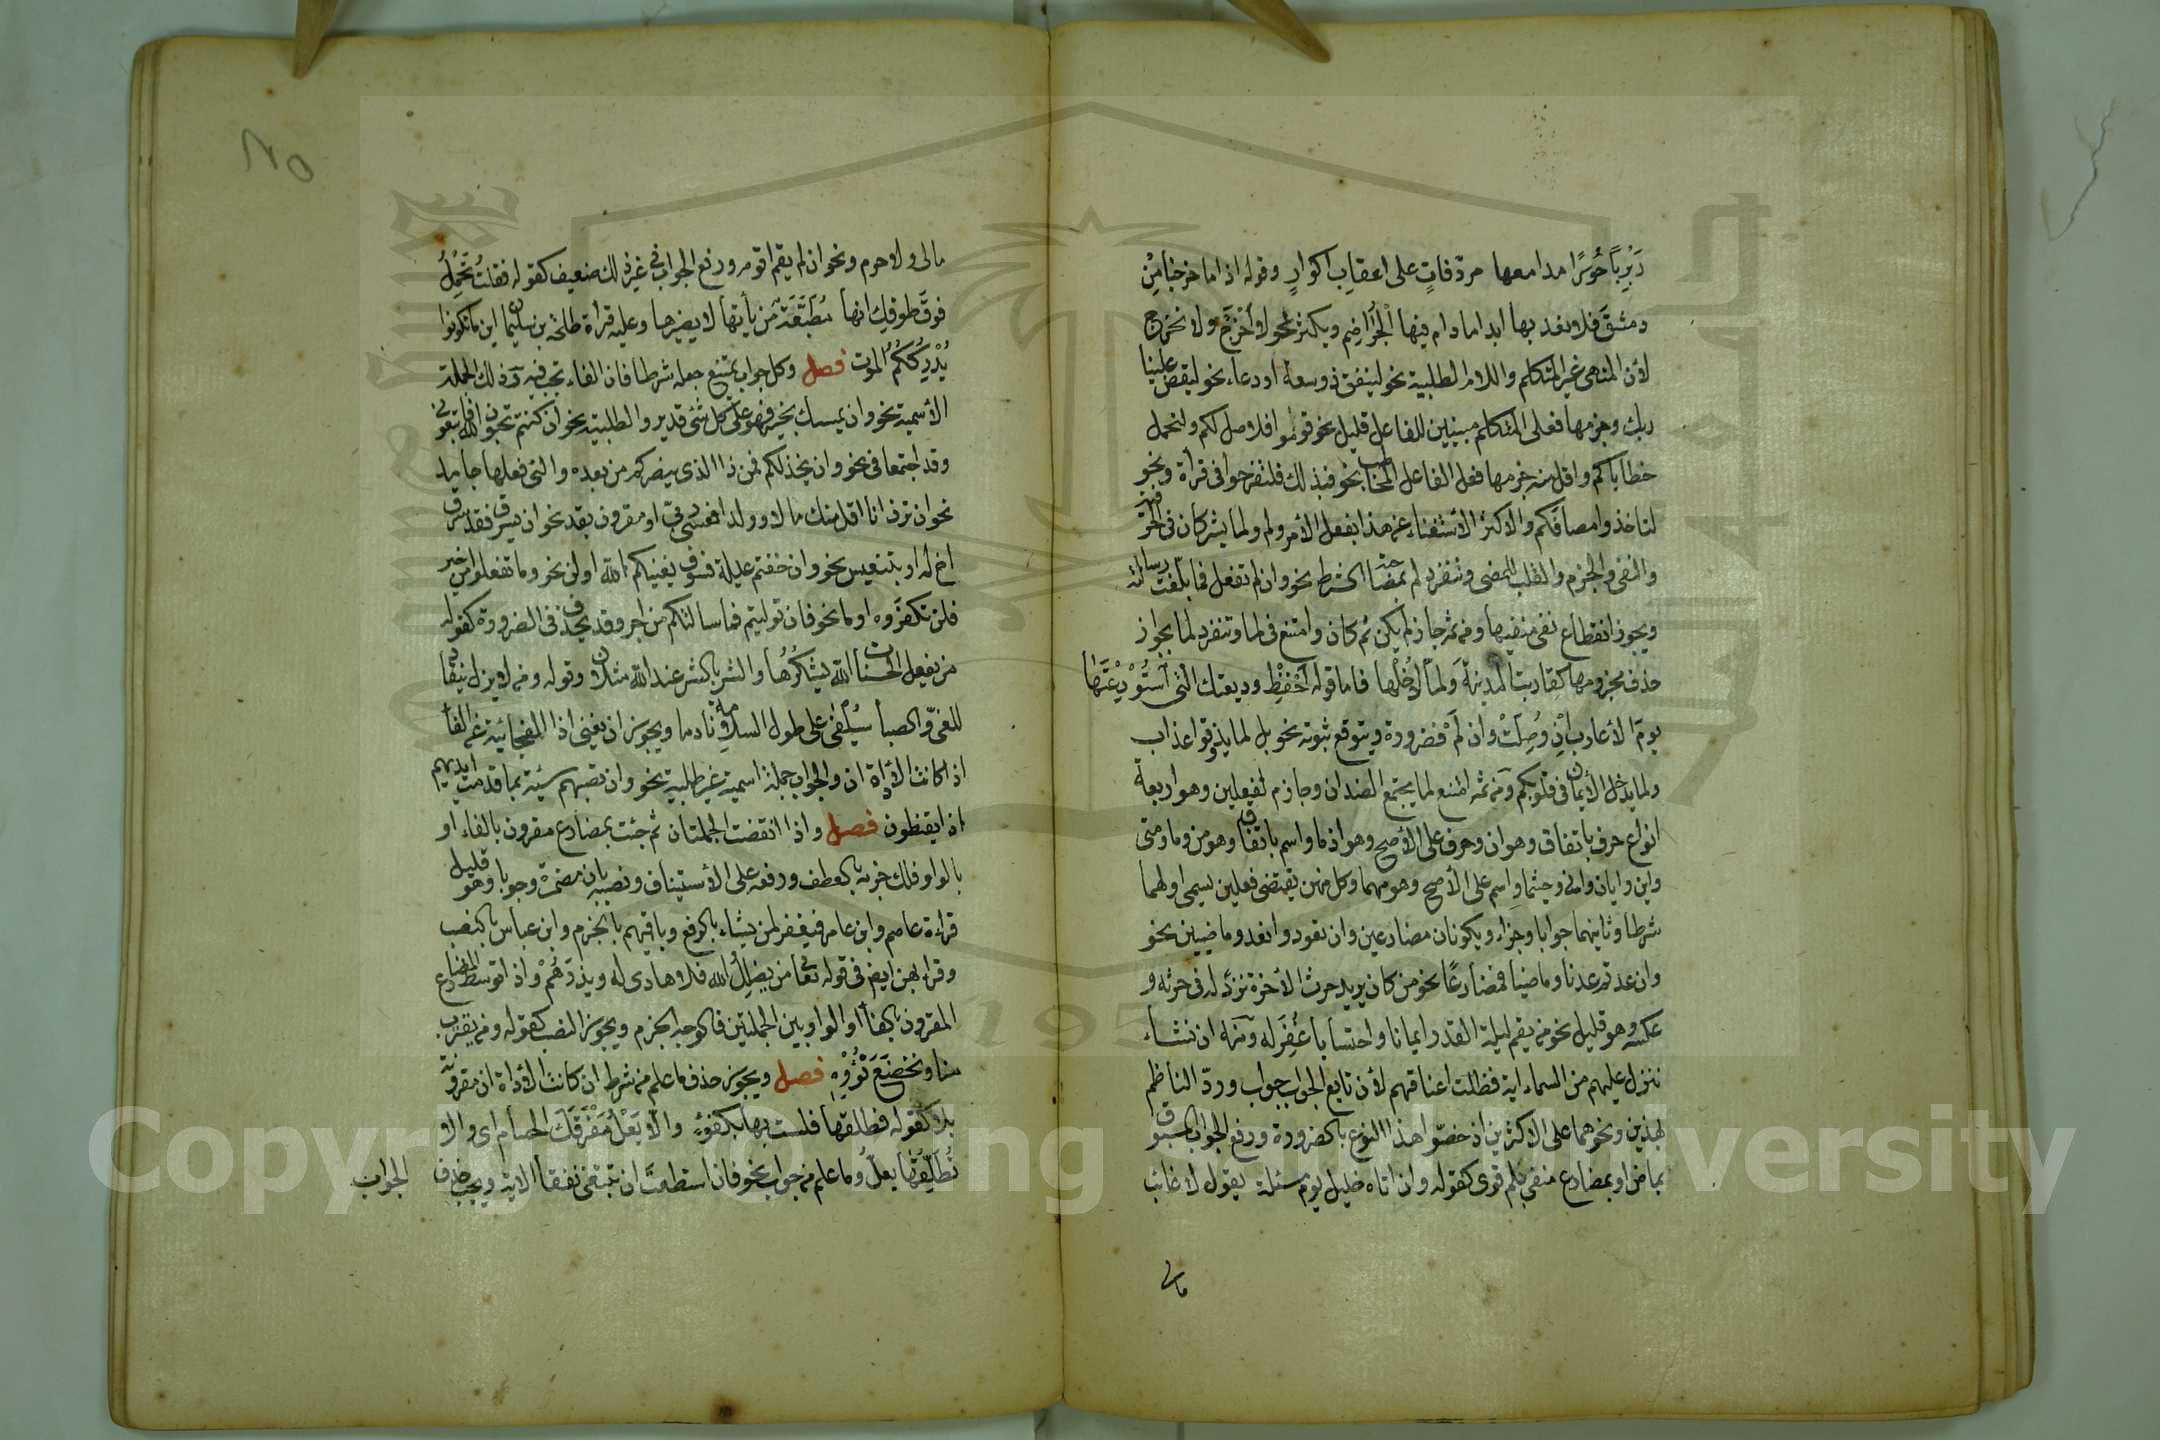 رَبْرَبًا حُورًا مدامعها مردفاتٍ على اعقابِ اكوارٍ وقوله اذا ما خرجنا مِنْ
دمشقَ فلا نعد بها ابدا ما دام فيها الْجُرَاضِم ويكثر نحو لا أُخْرَجْ ولا نُخْرَج
لأن المنهى غير المتكلم واللام الطلبية نحو لينفق ذو سعة او دعاء نحو ليقض علينا
ربك وجزمها فعلى المتكلم مبنيين للفاعل قليل نحو قوموا فلاصل لكم ولنحمل
خطاياكم واقل منه جزمها فعل الفاعل المخاطب نحو فبذلك فلتفرحوا فى قراة ونحو
لتاخذوا مصافكم والاكثر الأستغناء عن هذا بفعل الأمر ولم ولما يشتركان فى الحرفية
والنفى والجزم والقلب للمضى وتنفرد لم بمصاحبة الشرط نحو وان لم تفعل فما بلغت رسالته
ويجوز انقطاع نفى منفيها ومن ثم جاز لم يكن ثم كان وامتنع فى لما وتنفرد لما بجواز
حذف مجزومها كقاربت المدينة ولمّا اى ولما ادخلها فاما قوله اَحْفَظْ وديعتك التى اُسْتُوْدِعْتَهَا
يوم الأعازب اِنْ وُصِلَتْ وان لَمْ فضرورة وبتوقع ثبوته نحو بل لما يذوقوا عذاب
ولما يدخل الأيمان فى قلوبكم ومن ثم امتنع لما يجتمع الضدان وجازم لفعلين وهو اربعة
انواع حرف باتفاق وهو ان وحرف على الأصح وهو اذما واسم باتفاق وهو من وما ومتى
واين وايان وانى وحيثما واسم على الأصح وهو مهما وكل منهن يقتضى فعلين يسمى اولهما
شرطا وثانيهما جوابا وجزاء ويكونان مضارعين وان تعودوا نعد وماضيين نحو
وان عدتم عدنا وماضيا فمضارعًا نحو من كان يريد حرث الأخرة نزد له فى حرثه و
عكسه وهو قليل نحو من يقم ليلة القدر ايمانا واحتسابا غُفِرَ له ومنه ان نشاء
ننزل عليهم من السماء اية فظلت اعناقهم لأن تابع الجواب جواب وردّ الناظم
بهذين ونحوهما على الاكثرين اذ خصّوا هذا النوع بالضرورة ورفع الجواب المسبوق
بماض او بمضارع منفى بلم قوى كقوله وان اتاه خليل يوم مسئلة يقول لا غائب
مالى
مالى ولا حرم ونحو ان لم يقم اقوم ورفع الجواب فى غير ذلك ضعيف كقوله فقلتُ تَحَمَّلْ
فوقَ طوقِك انها مُطَبَّعَةٌ مَن يأتها لا يضيرها وعليه قراة طلحة بن سليمان اينما تكونوا
يُدْرِكُكُمُ الموت فصل وكل جواب يمتنع جعله شرطا فان الفاء تجب فيه وذلك الجملة
الأسمية نحو وان يمسسك بخير فهو على كل شئ قدير والطلبية نحو ان كنتم تحبون الله فاتبعونى
وقد اجتمعا فى نحو وان يخذلكم فمن ذا الذى ينصركم من بعده والتى فعلها جامد
نحو ان ترن انا اقل منك مالا وولدا فعسى ربى او مقرون بقد نحو ان يسرق فقد سرق
اخ له او بتنفيس نحو وان خفتم عيلة فسوف يغنيكم الله او لن نحو وما تفعلوا من خير
فلن تكفروه او ما نحو فان توليتم فما سالتكم من اجر وقد يحذف فى الضرورة كقوله
من يفعل الحسنات الله يشكُرُها والشر بالشر عند الله مثلان وقوله ومن لا يزل ينقاد
للغىّ والصبا سَيُلْفَى على طول السلامة نادما ويجوز ان تغنى اذا الفجائية عن الفاء
اذا كانت الأداة ان والجواب جملة اسمية غير طلبية نحو وان تصبهم سيئة بما قدمت ايديهم
اذا يقنطون فصل واذا انقضت الجملتان ثم جئت بمضارع مقرون بالفاء او
بالواو فلك جزمه بالعطف ورفعه على الأستيناف ونصبه بان مضمرة وجوبا وهو قليل
قراءة عاصم وابن عامر فيغفر لمن يشاء بالرفع وباقيهم بالجزم وابن عباس بالنصب
وقراء بهن ايضا فى قوله تعالى من يضلل الله فلا هادى له ويذرهُمْ واذا توسط المضارع
المقرون بالفاء او الواو بين الجملتين فالوجه الجزم ويجوز النصب كقوله ومن يقترب
منا ويَخْضَعَ نُؤْوِهِ فصل ويجوز حذف ما علم من شرط ان كانت الأداة ان مقرونة
بلا كقوله فطلقها فلست بها بكفؤٍ والاّ يَعْلُ مَفْرَقَكَ الحسام اى والا
تُطَلِّقْها يعلُ وما علم من جواب نحو فان استطعتَ ان تبتغى نفقا الاية ويجب حذف
الجواب
Copyright © King Saud University
1957